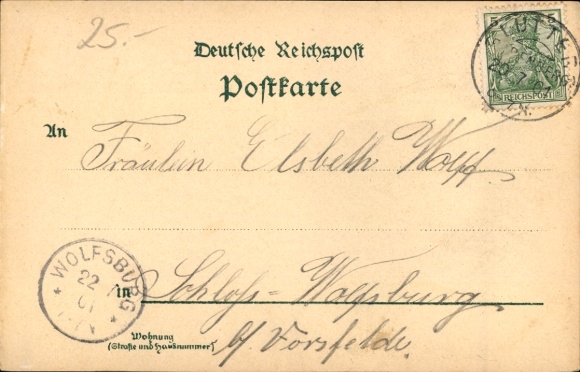 25.-
Deutsche Reichspost
Postkarte
5
REICHSPOST
An
Fräulein Elsbeth Wolff.
WOLFSBURG
22
01
in Schloss-Wolfsburg
b/ Vorsfelde.
Wohnung
(Straße und Hausnummer)